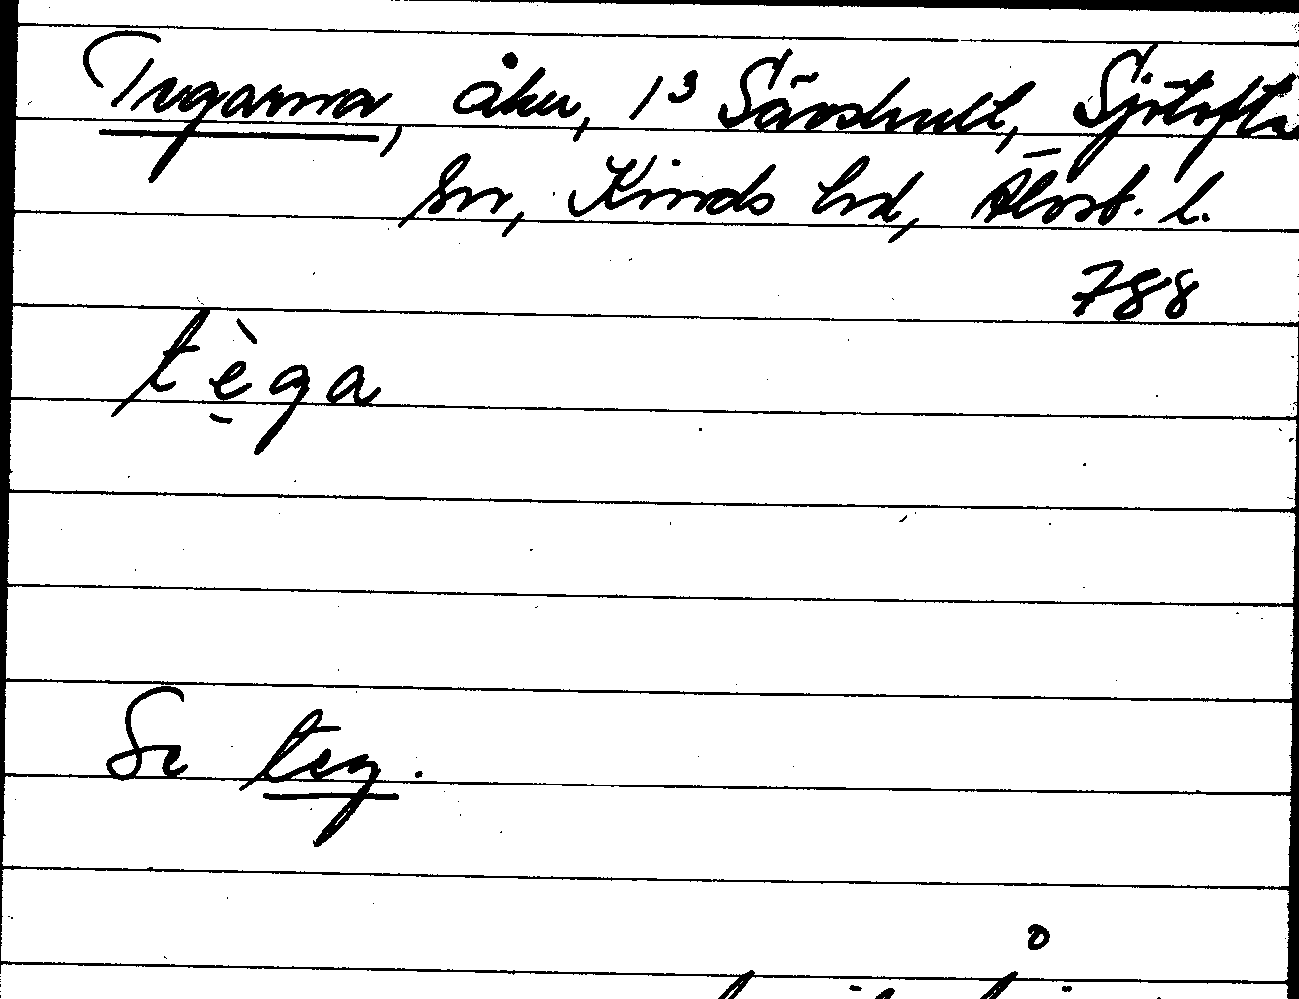 Tegarna, åker, 1³ Sävshult, Sjötofta
sn, Kinds hd, Älvsb. l.
788
tèga
Se teg.